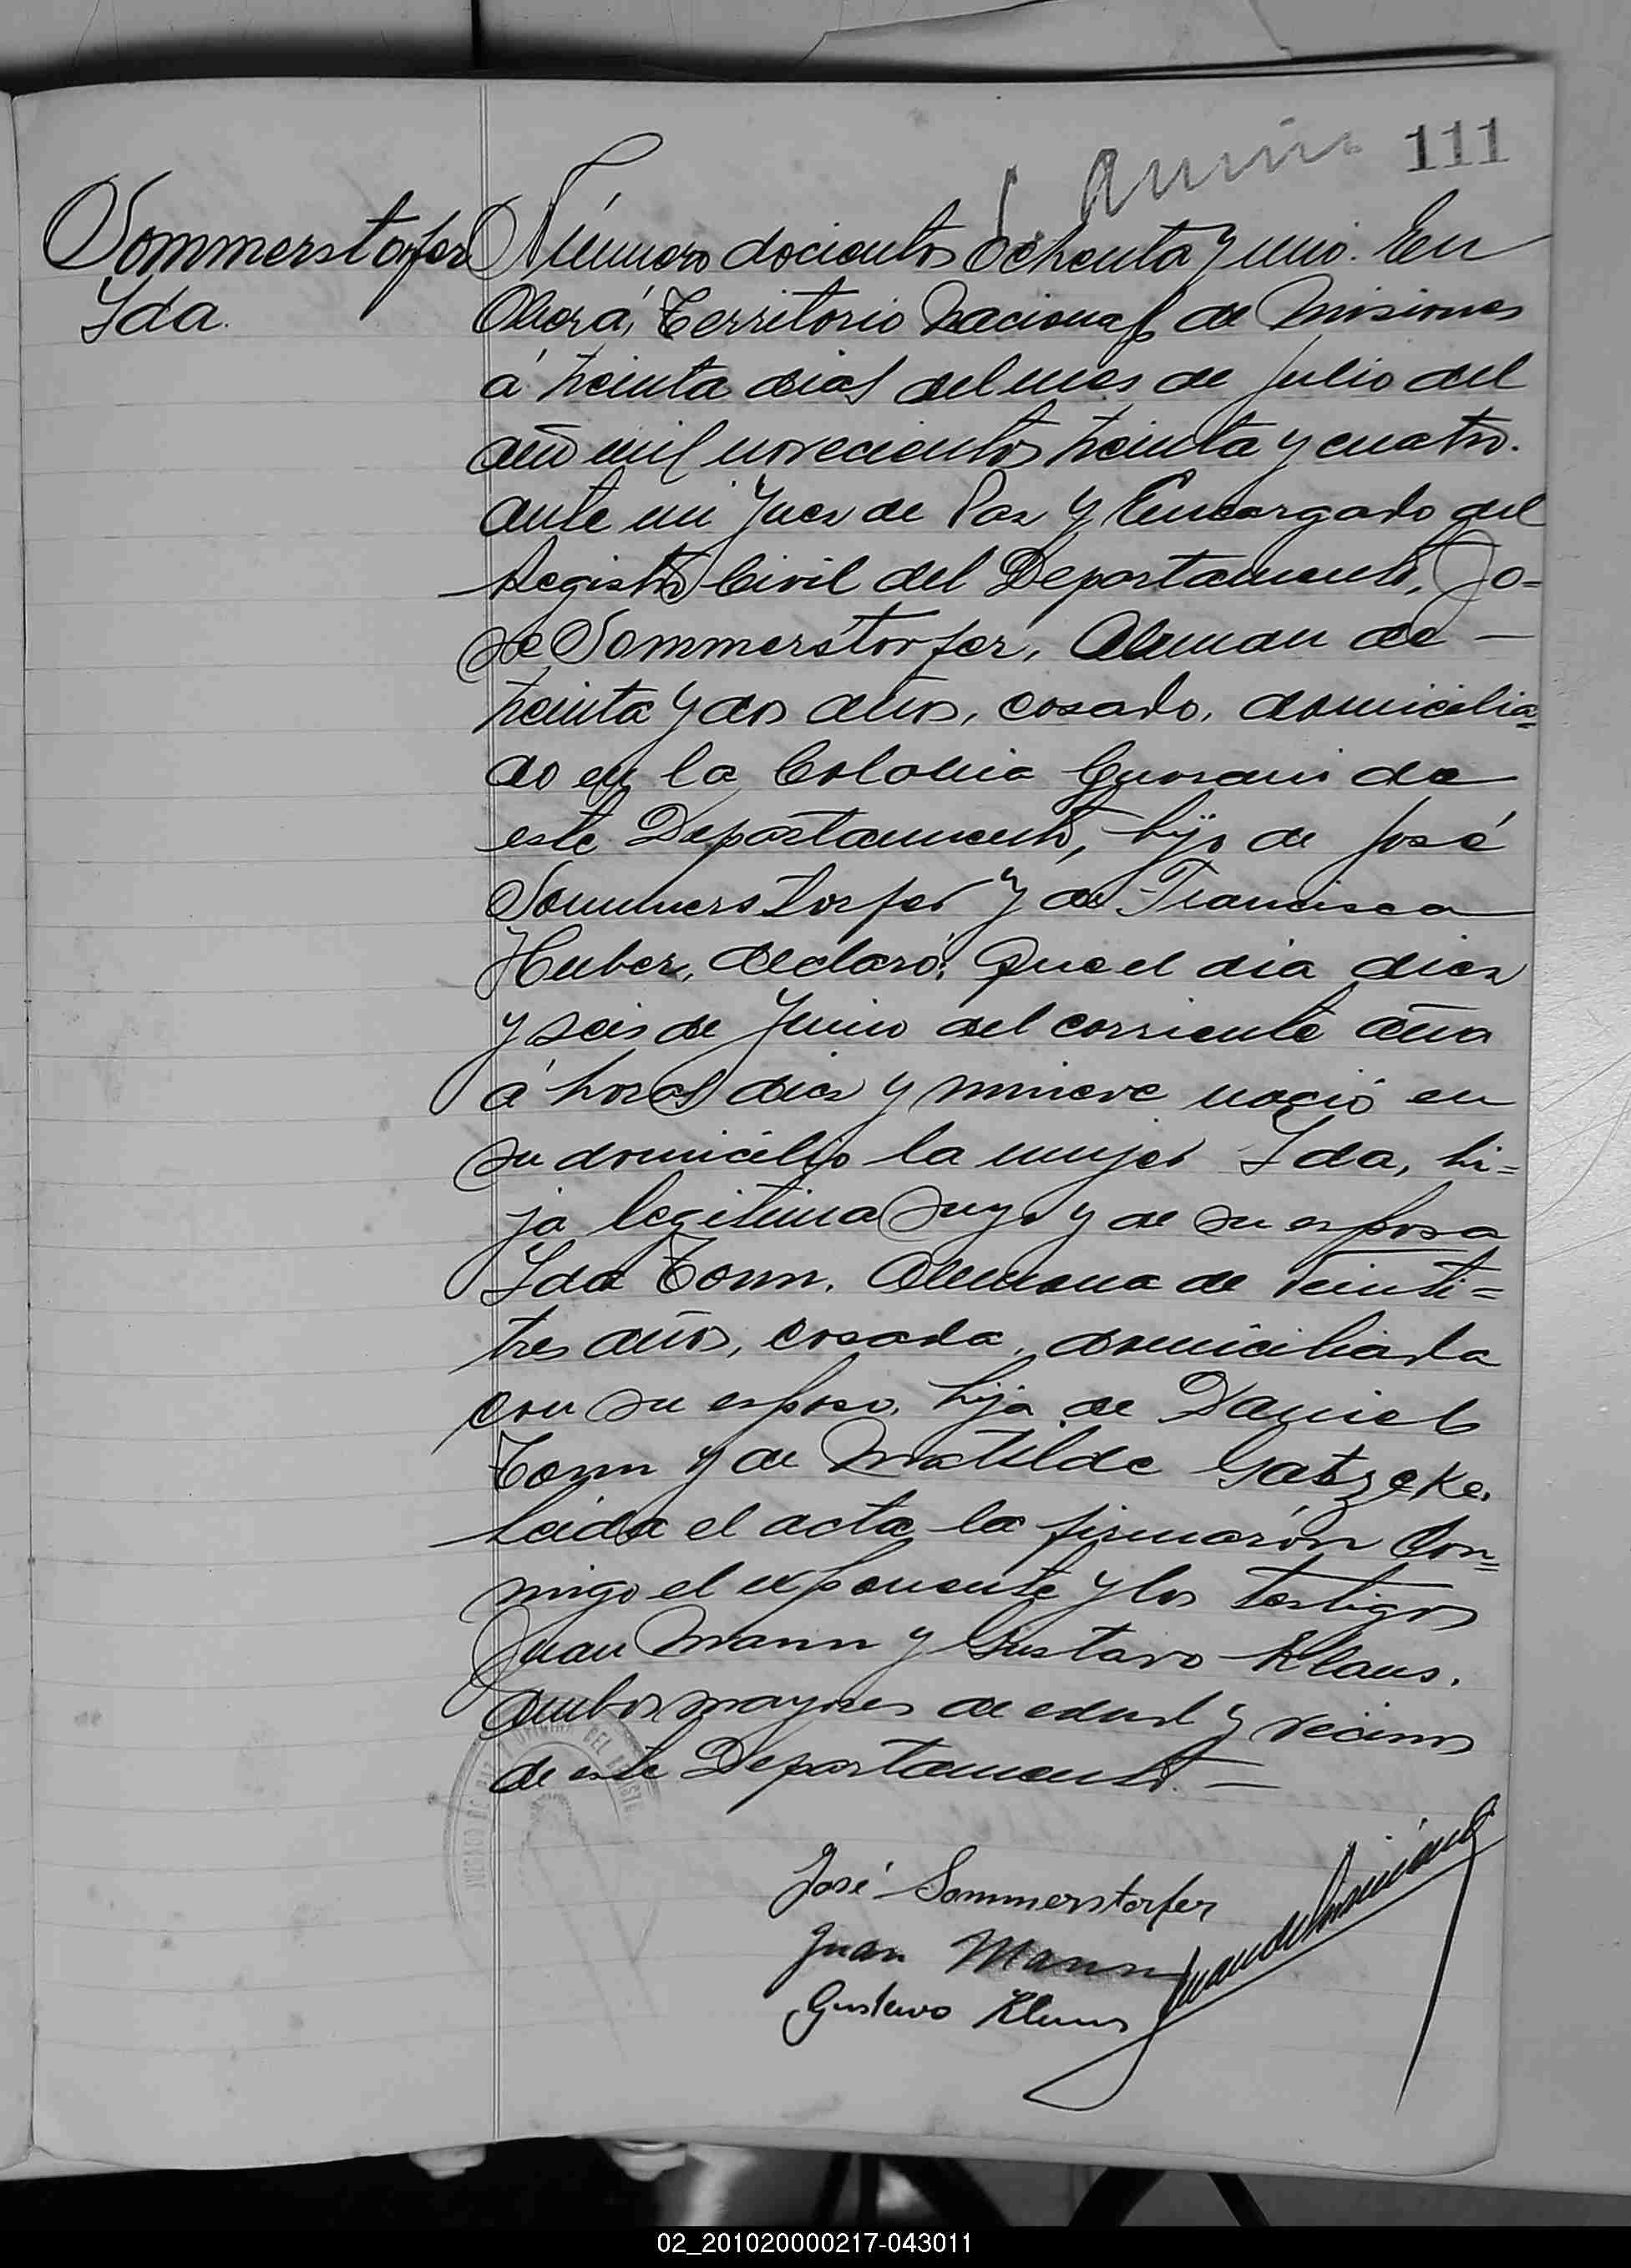 111
Sommerstorfer
Ida.
Número docientos ochenta y uno. En
Oberá, Territorio Nacional de Misiones
á treinta dias del mes de Julio del
año mil novecientos treinta y cuatro.
ante mi Juez de Paz y Encargado del
Registro Civil del Departamento, Jo=
se Sommerstorfer, Aleman de —
treinta y dos años, casado, domicilia=
do en la Colonia Guarani de
este Departamento, hijo de José
Sommerstorfer y de Francisca
Huber, declaró: Que el dia diez
y seis de Junio del corriente año
á horas diez y nueve nació en
su domicilio la mujer Ida, hi=
ja legitima suya y de su esposa
Ida Tonn, Alemana de veinti=
tres años, casada, domiciliada
con su esposo, hija de Daniel
Tonn y de Matilde Gatzeke.
Leida el acta la firmarón con=
migo el exponente y los testigos
Juan Mann y Gustavo Klaus,
ambos mayores de edad y vecinos
de este Departamento. —
José Sommerstorfer
Juan Mann
Gustavo Klaus
02_201020000217-043011